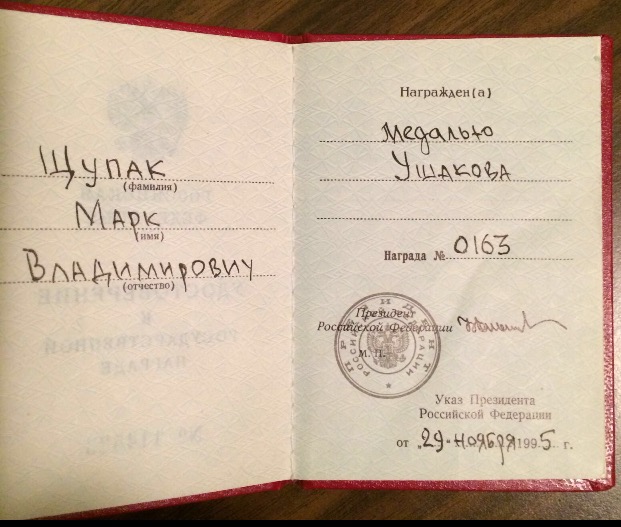 Щупак
(фамилия)
Марк
(имя)
Владимирович
(отчество)
Награжден(а)
медалью
Ушакова
Награда № 0163
Президент
Российской Федерации
М. П.
Указ Президента
Российской Федерации
от „29„ ноября 1995 г.